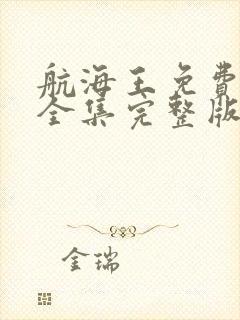 航海王免費
全集完整版
金瑞